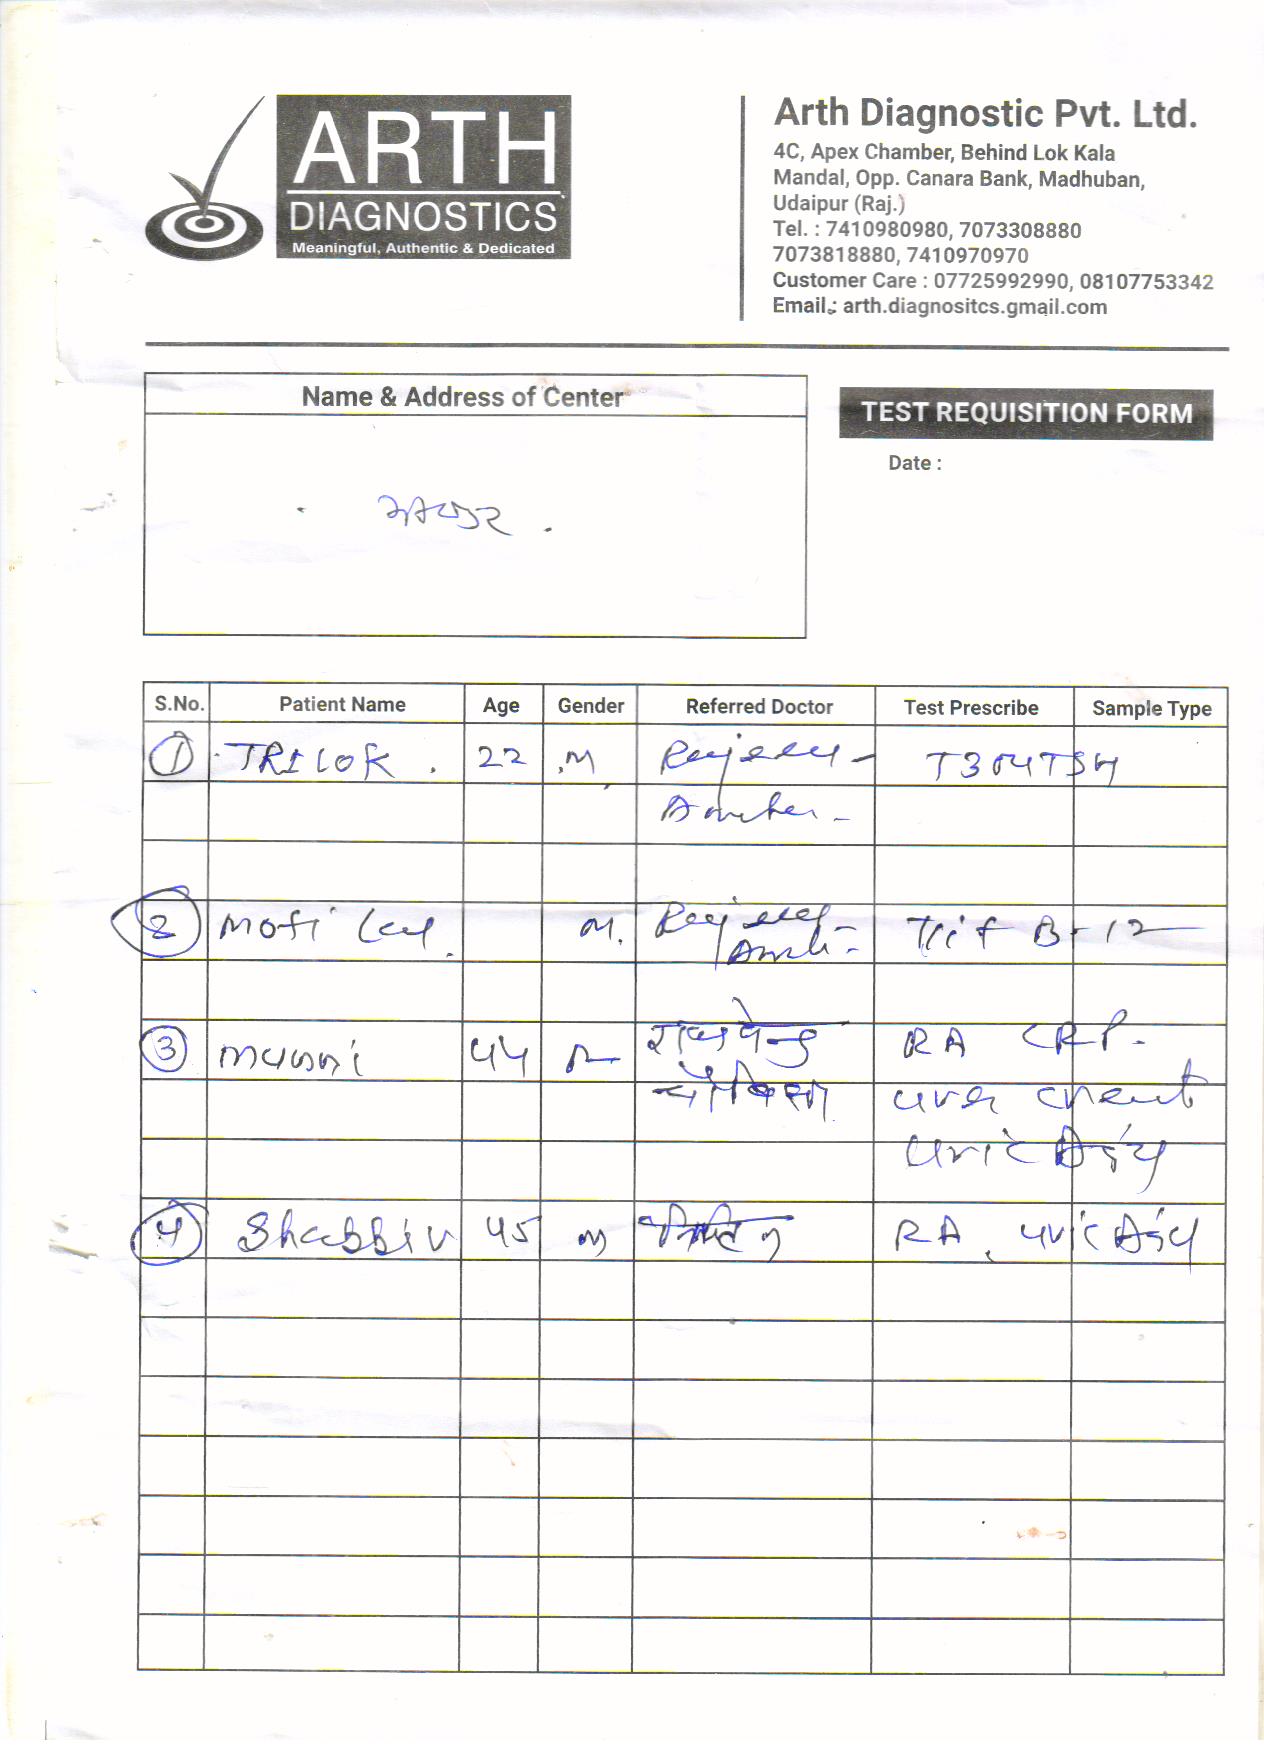 ARTH
DIAGNOSTICS
Meaningful, Authentic & Dedicated
Arth Diagnostic Pvt. Ltd.
4C, Apex Chamber, Behind Lok Kala
Mandal, Opp. Canara Bank, Madhuban,
Udaipur (Raj.)
Tel. : 7410980980, 7073308880
7073818880, 7410970970
Customer Care : 07725992990, 08107753342
Email : arth.diagnositcs.gmail.com
Name & Address of Center
TEST REQUISITION FORM
Date :
S.No. Patient Name Age Gender Referred Doctor Test Prescribe Sample Type
1 TRILOK . 22 M T3T4TSH
2 Moti Lal . M. B-12
3 Munni 44 RA CRP.
Uric Acid
4 Shabbir 45 M RA, Uric Acid